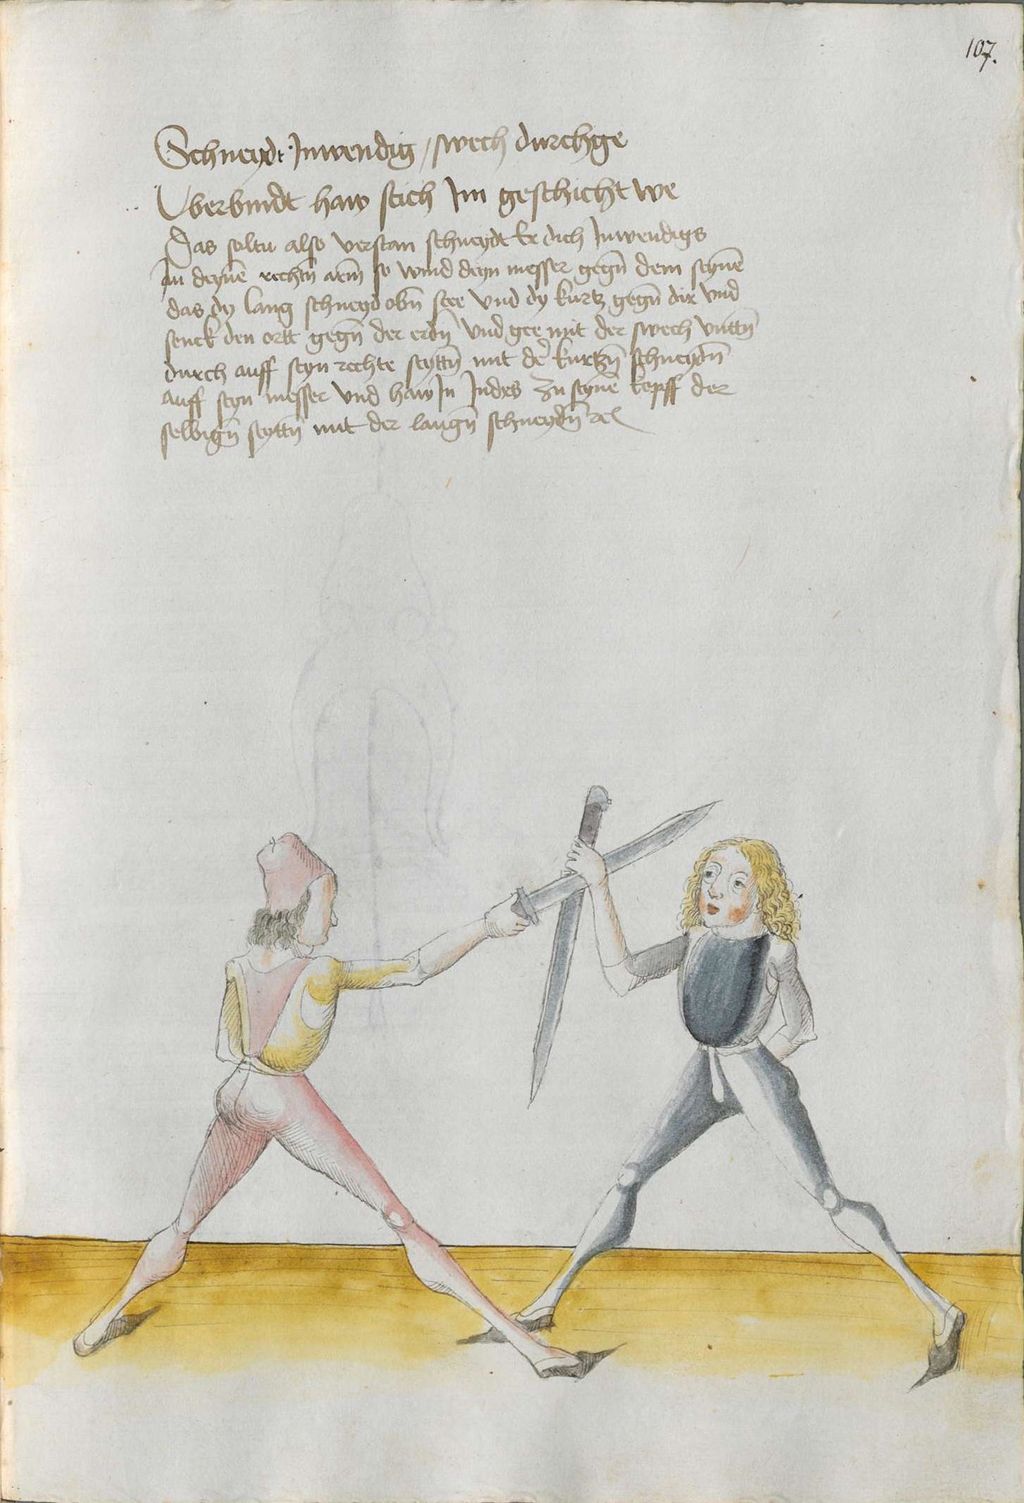 107.
Schneydt Inwendig / swech durchge
Vberbindt haw stich Im geschicht we
Das soltu also verstan schneydt Er dich Inwendigs
In deynē rechtn̄ arm̄ so wind deyn messer gegn̄ dem seynē
das dy lang schneyd obn̄ stee vnd dy kurtz gegn̄ dir vnd
senck den ortt gegn̄ der erdn̄ vnd gee mit der swech vnttn̄
durch auff seyn rechte seyttn̄ mit der kurtzn̄ schneydn̄
auff seyn messer vnd haw In Indes zu seynē kopff der
selbign̄ seyttn̄ mit der langn̄ schneydn̄ ꝛc